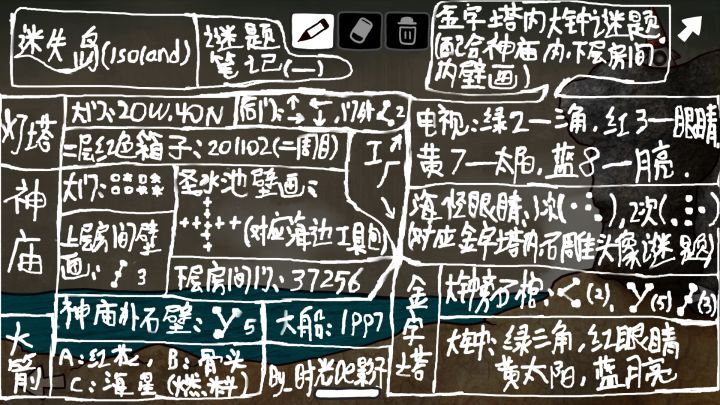 迷失岛(isoland)
谜题
笔记(一)
金字塔内大钟谜题
(配合神庙内,下层房间
内壁画)
灯塔
大门:20W,40N
后门:↑→←↓
二层红色箱子:201102(二周目)
工厂
神庙
大门:
圣水池壁画:
(对应海边工具包)
上层房间壁
画: 3
下层房间门:37256
神庙外石壁:Y5
大船:1997
火箭
A:红花,B:骨头
C:海星(燃料)
By时光de影子
电视:绿2一三角,红3一眼睛,
黄7一太阳,蓝8一月亮.
海怪眼睛:1次(∵),2次(∴)
(对应金字塔内石雕头像谜题)
金字塔
大钟旁石棺:<(2),Y(5),(3)
大钟:绿三角,红眼睛
黄太阳,蓝月亮